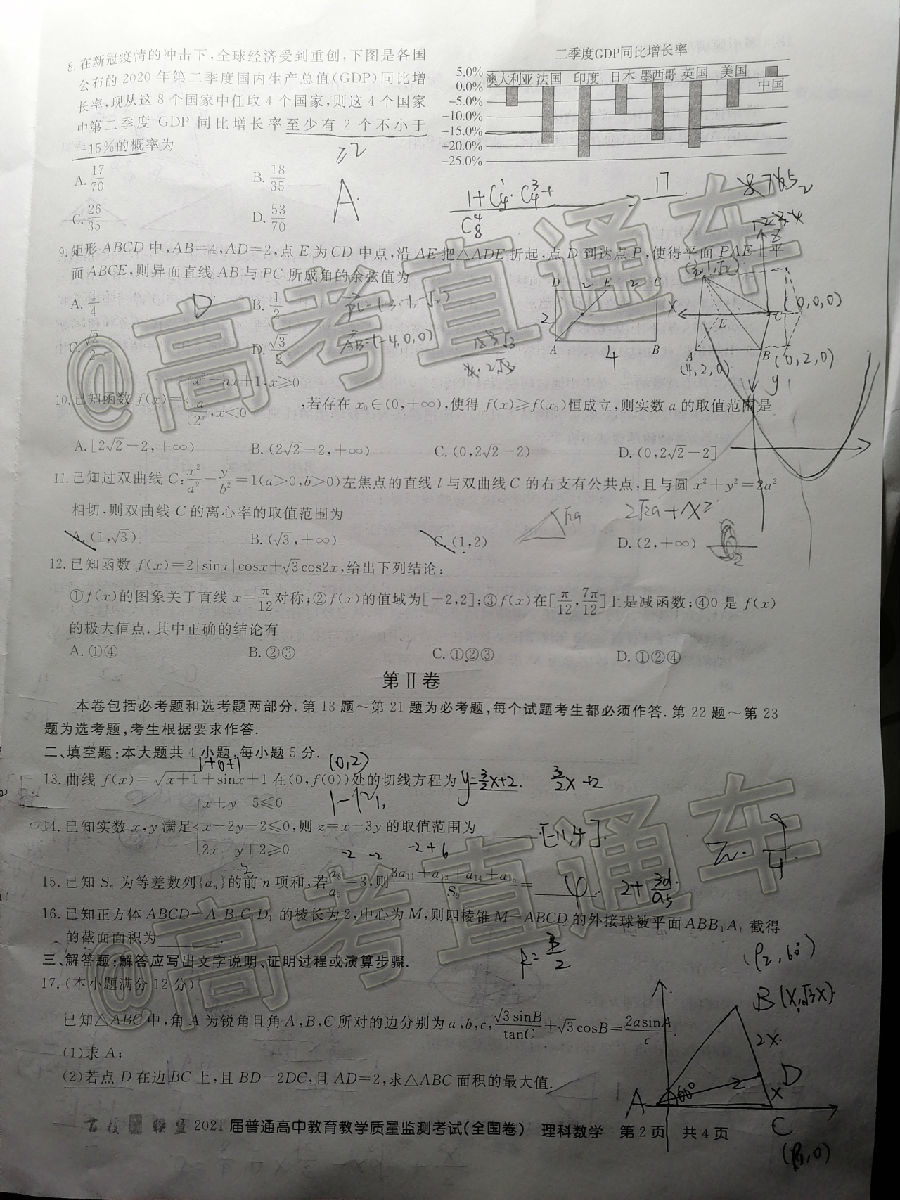 8.在新冠疫情的冲击下,全球经济受到重创,下图是各国
公布的2020年第二季度国内生产总值(GDP)同比增
长率,现从这8个国家中任取4个国家,则这4个国家
中第二季度GDP同比增长率至少有2个不小于
-15%的概率为
A. 17/70 B. 18/35
C. 26/35 D. 53/70
二季度GDP同比增长率
5.0%
0.0%
-5.0%
-10.0%
-15.0%
-20.0%
-25.0%
澳大利亚 法国 印度 日本 墨西哥 英国 美国 中国
≥2
A
17
9.矩形ABCD中,AB=4,AD=2,点E为CD中点,沿AE把△ADE折起,点D到达点P,使得平面PAE⊥平
面ABCE,则异面直线AB与PC所成角的余弦值为
A. 1/4 D B. 1/2
D. √3/3
AB=(-4,0,0)
D 2 E 2 C
2
A 4 B
(0,0,0)
(4,2,0) B (0,2,0)
y
@高考直通车
10.已知函数f(x)= ,若存在x₀∈(0,+∞),使得f(x)≥f(x₀)恒成立,则实数a的取值范围是
A.[2√2-2,+∞) B.(2√2-2,+∞) C.(0,2√2-2) D.(0,2√2-2]
11.已知过双曲线C:x²/a²-y²/b²=1(a>0,b>0)左焦点的直线l与双曲线C的右支有公共点,且与圆x²+y²=2a²
相切,则双曲线C的离心率的取值范围为
A.(1,√3) B.(√3,+∞) C.(1,2) D.(2,+∞)
√2a
12.已知函数f(x)=2|sinx|cosx+√3cos2x,给出下列结论:
①f(x)的图象关于直线x=π/12对称;②f(x)的值域为[-2,2];③f(x)在[π/12,7π/12]上是减函数;④0是f(x)
的极大值点,其中正确的结论有
A.①④ B.②③ C.①②③ D.①②④
第Ⅱ卷
本卷包括必考题和选考题两部分.第13题~第21题为必考题,每个试题考生都必须作答.第22题~第23
题为选考题,考生根据要求作答.
二、填空题:本大题共4小题,每小题5分.
1+0+1 (0,2)
13.曲线f(x)=√x+1+sinx+1在(0,f(0))处的切线方程为y=3/2x+2. 3/2x+2
14.已知实数x,y满足{x+y-5≤0 x-2y-2≤0 2x-y+2≥0,则z=x-3y的取值范围为 [-1,4]
-2 -2 -2+6
15.已知Sₙ为等差数列{aₙ}的前n项和,若 =3,则
16.已知正方体ABCD-A₁B₁C₁D₁的棱长为2,中心为M,则四棱锥M-ABCD的外接球被平面ABB₁A₁截得
的截面面积为
三、解答题:解答应写出文字说明、证明过程或演算步骤.
@高考直通车
17.(本小题满分12分)
已知△ABC中,角A为锐角且角A,B,C所对的边分别为a,b,c,√3sinB/tanC+√3cosB=2asinA/c.
(1)求A;
(2)若点D在边BC上,且BD=2DC,且AD=2,求△ABC面积的最大值.
B(x,√3x)
2x
D
2
60°
A
x
C
2021届普通高中教育教学质量监测考试(全国卷) 理科数学 第2页 共4页